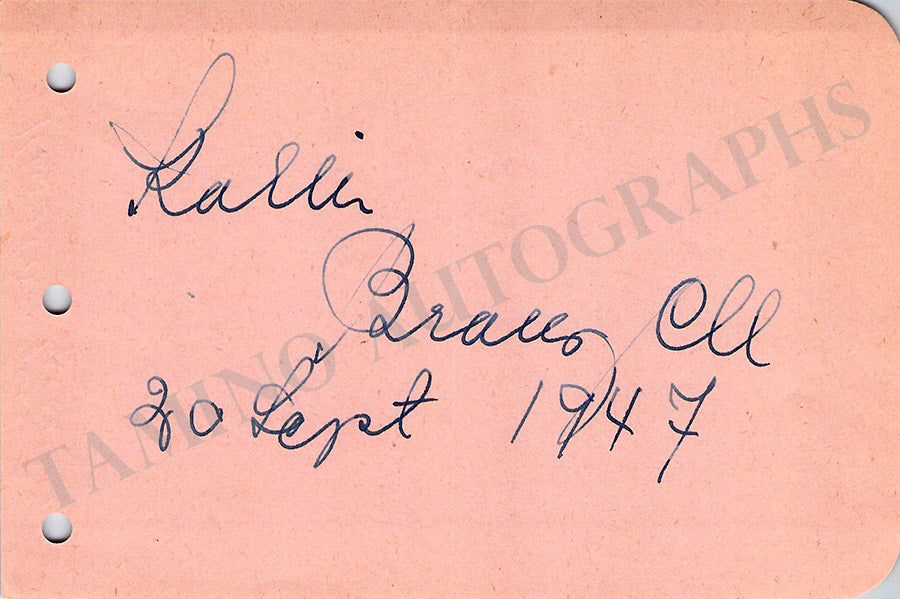 Karin
Branzell
20 Sept 1947
TAMINO AUTOGRAPHS